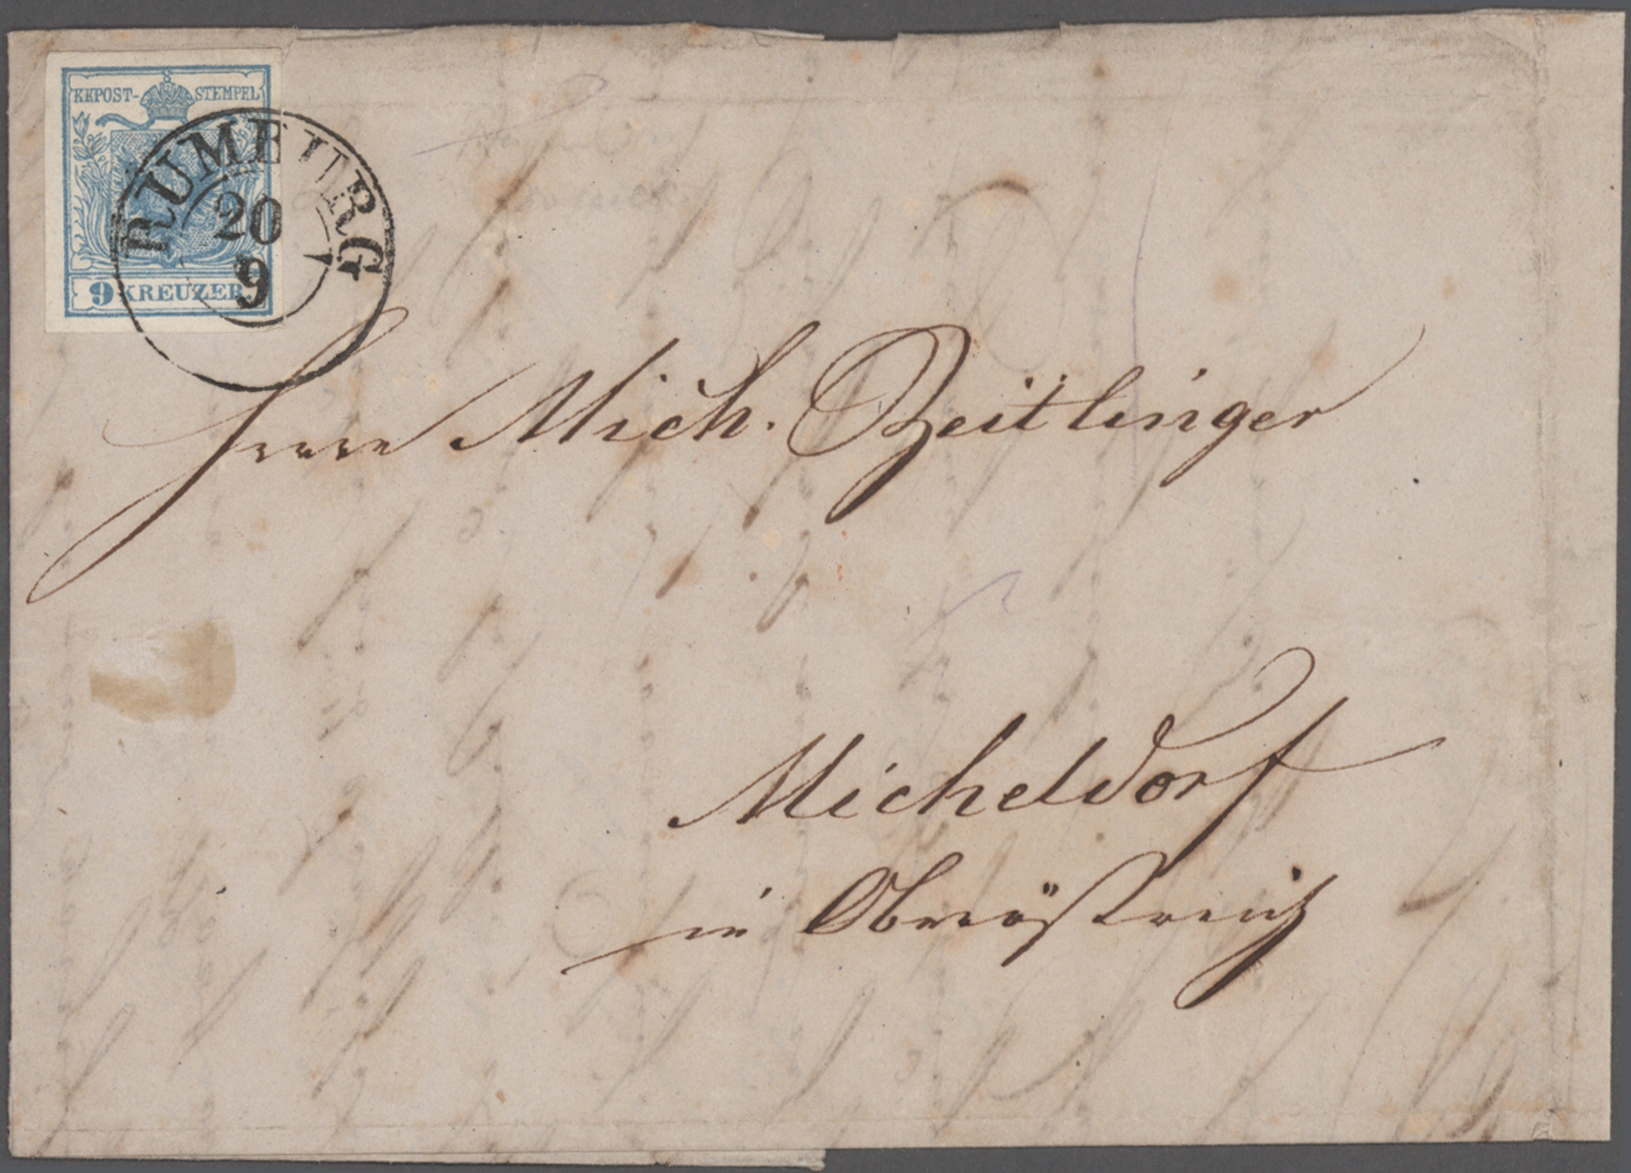 KKPOST-STEMPEL
RUMBURG
20
9
9 KREUZER
Herrn Mich. Zeitlinger
Micheldorf
in Oberöstreich